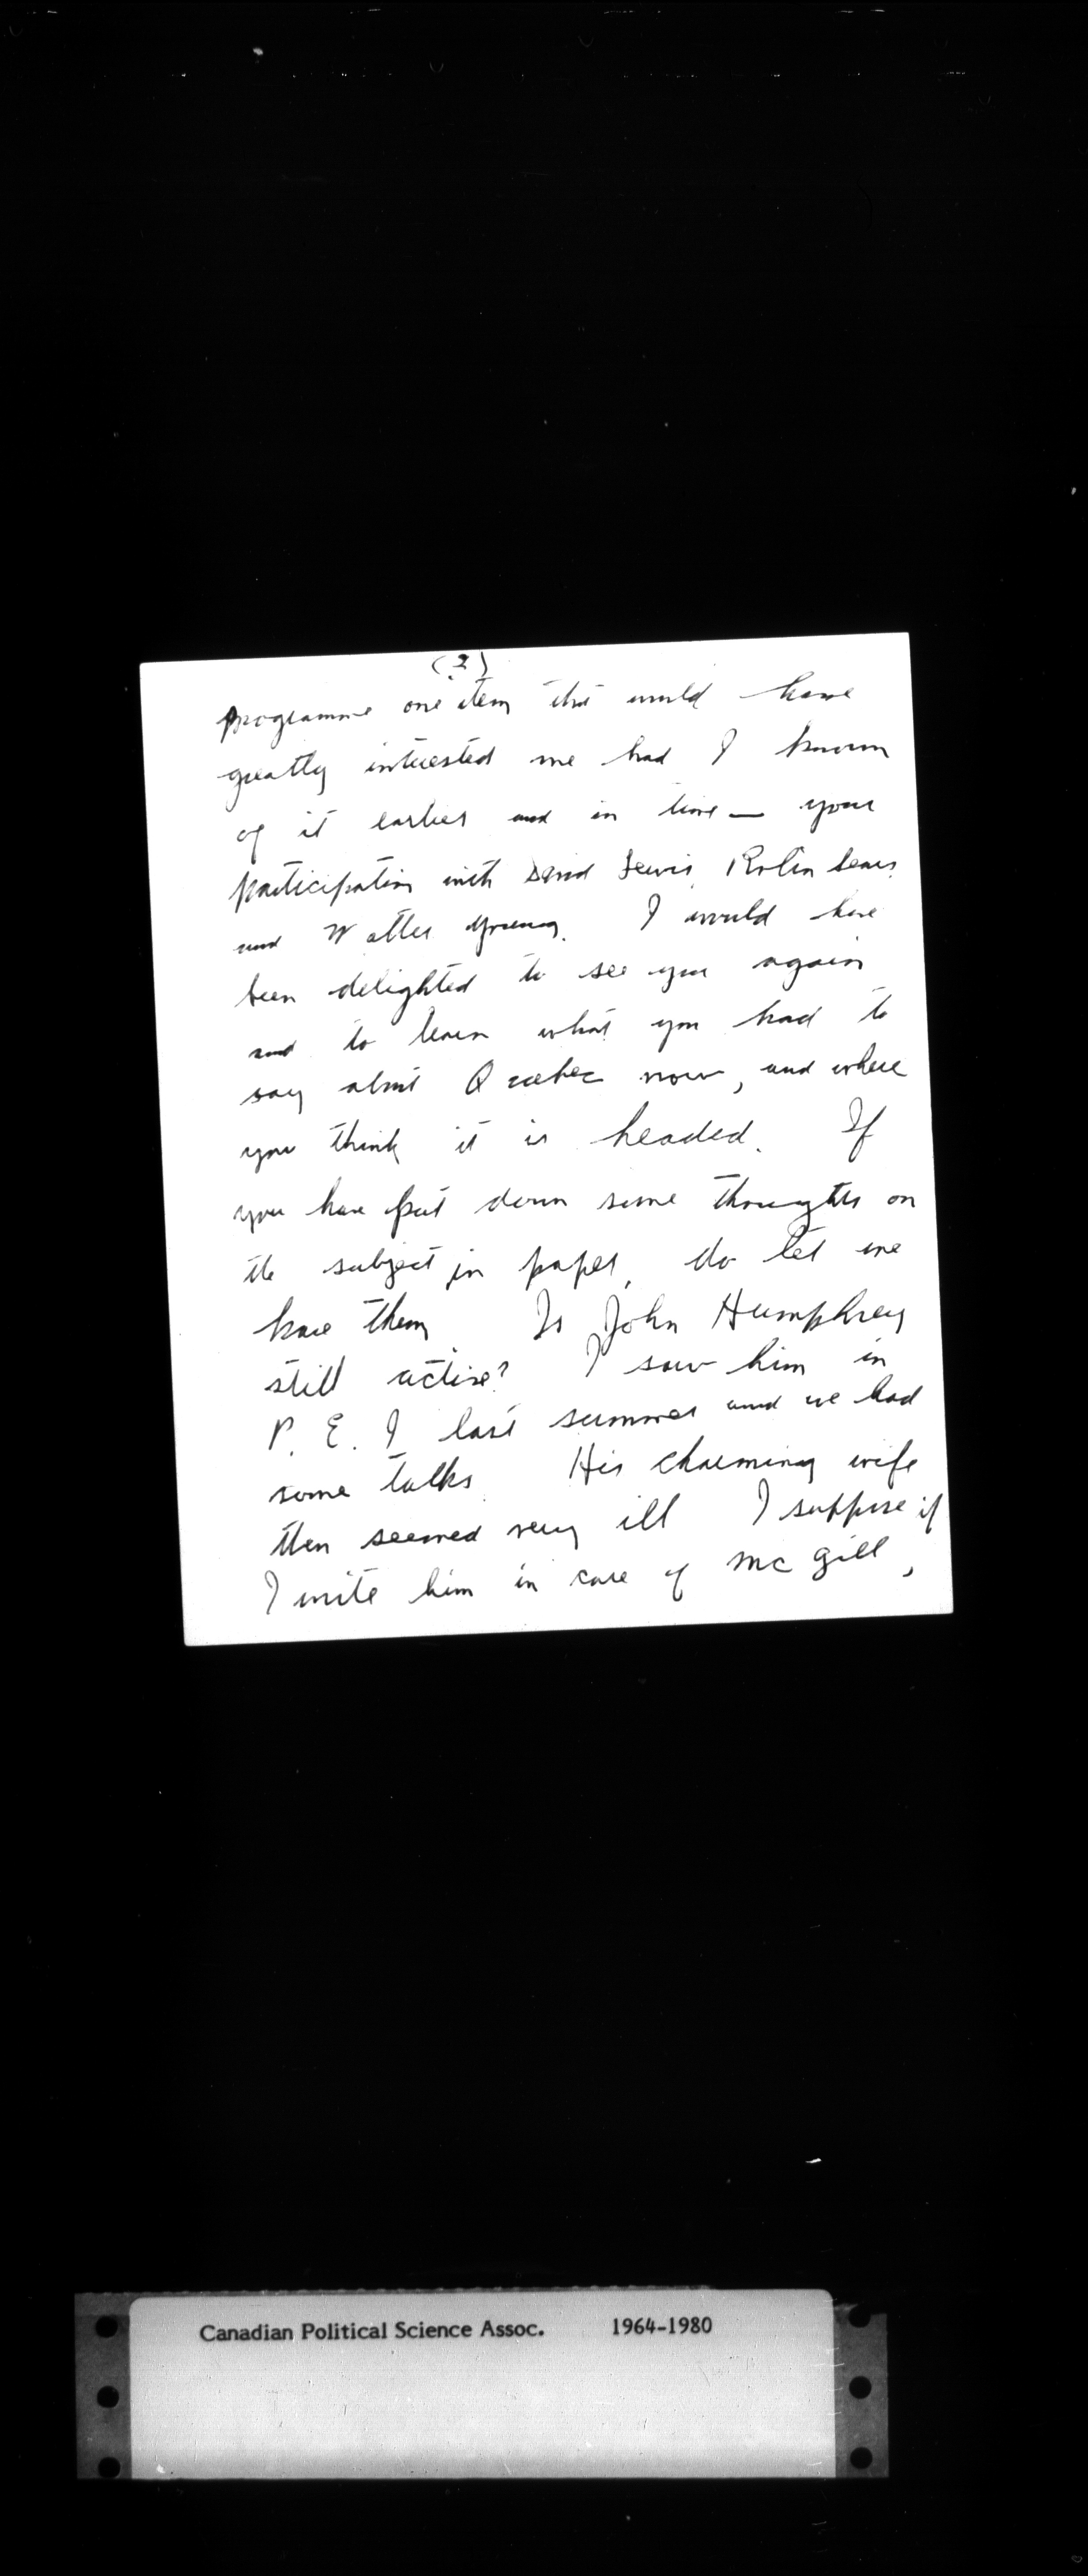 (2)
programme one item that would have
greatly interested me had I known
of it earlier and in time — your
participation with David Lewis, Robin Sears,
and Walter Young. I would have
been delighted to see you again
and to learn what you had to
say about Quebec now, and where
you think it is headed. If
you have put down some thoughts on
the subject in paper, do let me
have them. Is John Humphrey
still active? I saw him in
P. E. I last summer and we had
some talks. His charming wife
then seemed very ill I suppose if
I write him in care of McGill,
Canadian Political Science Assoc. 1964-1980